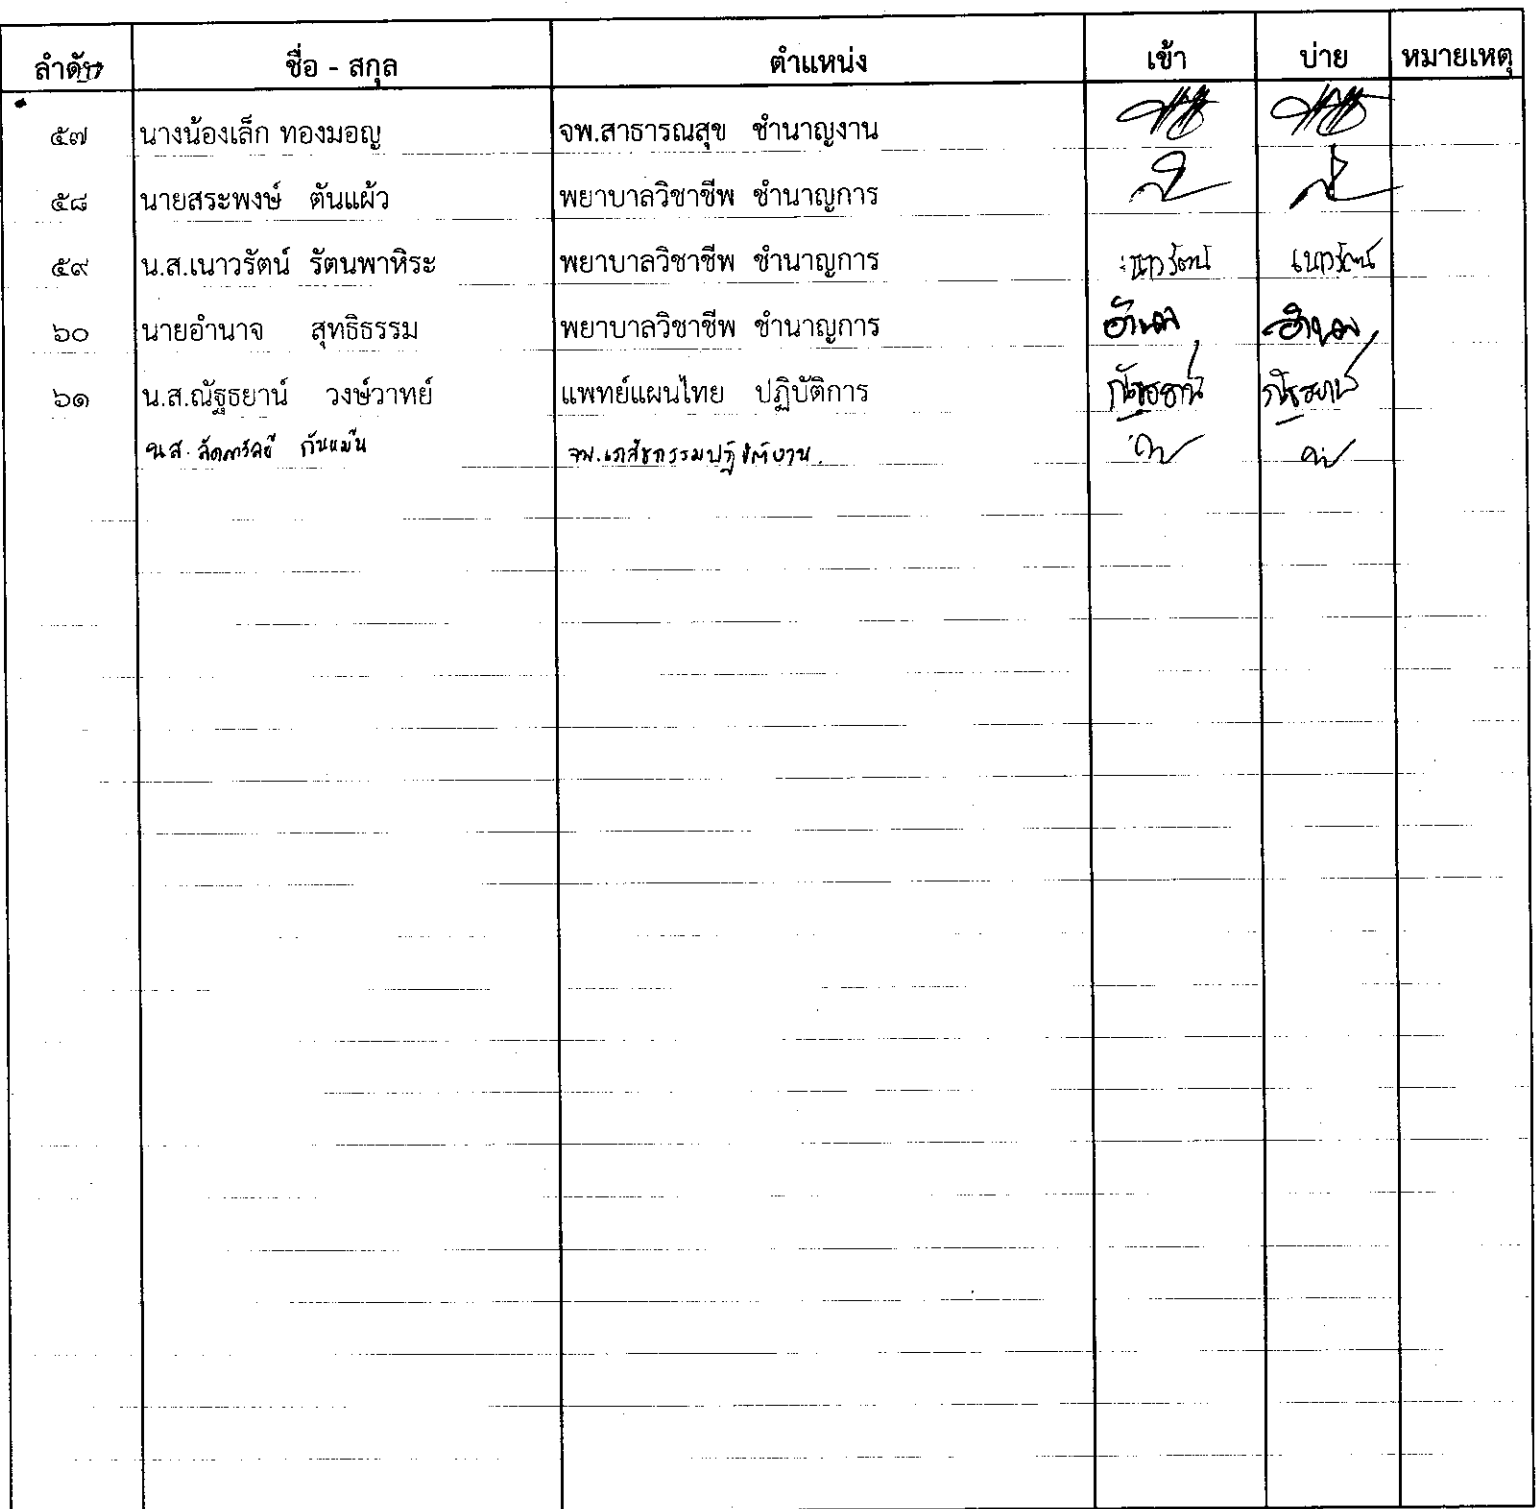 ลำดับ ชื่อ - สกุล ตำแหน่ง เช้า บ่าย หมายเหตุ
๕๗ นางน้องเล็ก ทองมอญ จพ.สาธารณสุข ชำนาญงาน
๕๘ นายสระพงษ์ ตันแผ้ว พยาบาลวิชาชีพ ชำนาญการ
๕๙ น.ส.เนาวรัตน์ รัตนพาหิระ พยาบาลวิชาชีพ ชำนาญการ เนาวรัตน์ เนาวรัตน์
๖๐ นายอำนาจ สุทธิธรรม พยาบาลวิชาชีพ ชำนาญการ อำนาจ อำนาจ
๖๑ น.ส.ณัฐธยาน์ วงษ์วาทย์ แพทย์แผนไทย ปฏิบัติการ ณัฐธยาน์ ณัฐธยาน์
น.ส. จพ.เภสัชกรรมปฏิบัติงาน.